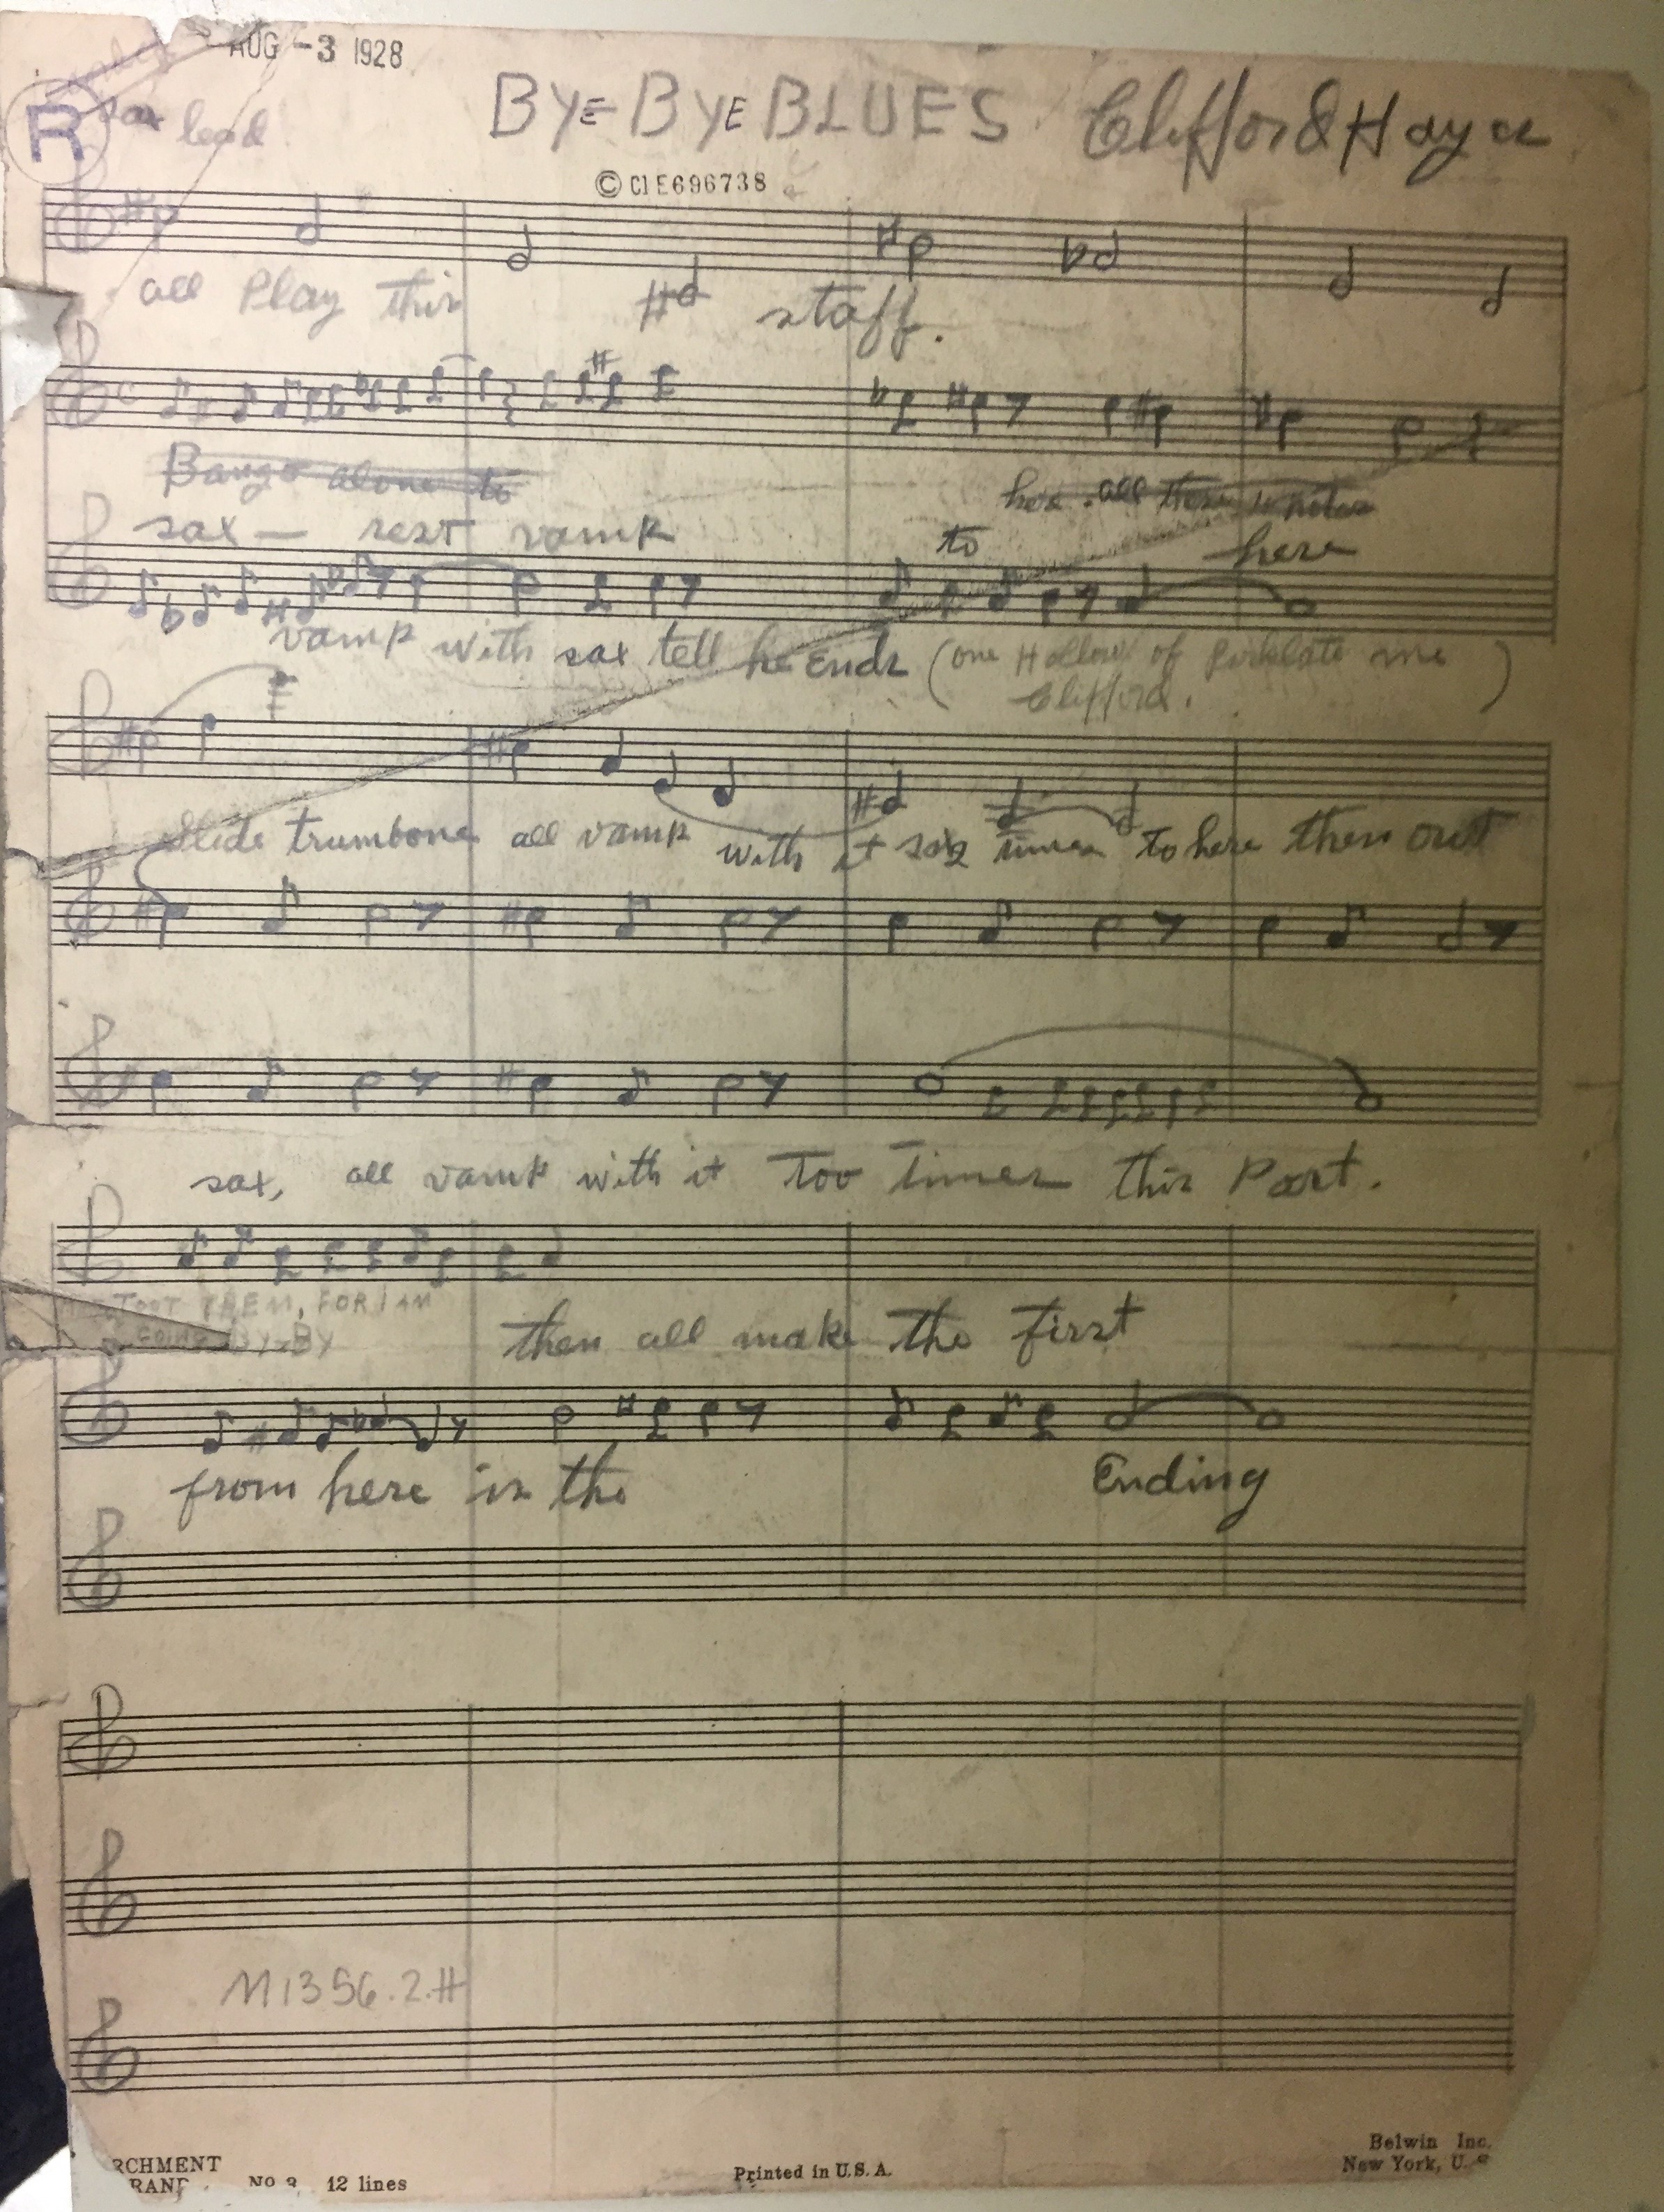 AUG -3 1928
R
sax lead
BYE BYE BLUES Clifford Hayes
© CI E696738
all Play this staff.
C
Banyo alone to here. all these notes
sax — rest vamp to here
vamp with sax tell he Ends (one Hollow of me
Clifford.)
Slide trumbone all vamp with it times to here then out
sax, all vamp with it Too Times this Part.
TOOT THEM, FOR I AM
GOING BY-BY
then all make the first
from here is the Ending
M1356.2.H
RCHMENT
BRAND No 3 12 lines
Printed in U.S.A.
Belwin Inc.
New York, U.S